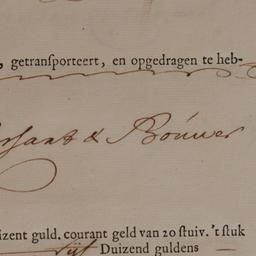 , getranſporteert, en opgedragen te heb-
& Bouwer
izent guld. courant geld van 20 ſtuiv. 't ſtuk
Duizend guldens